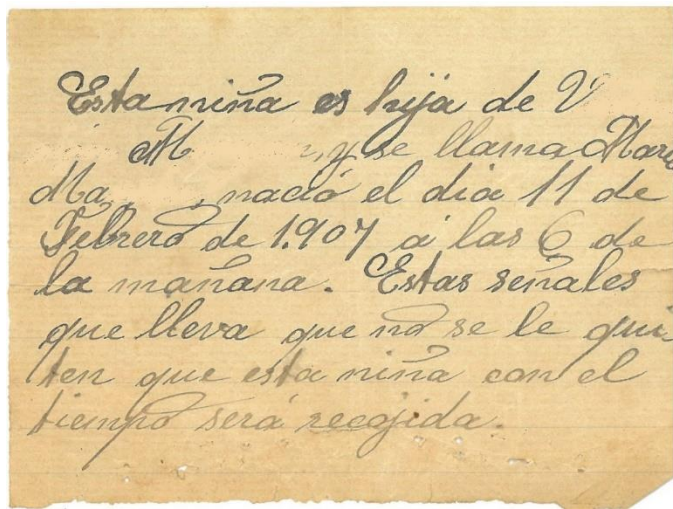 Esta niña es hija de V
M y se llama Mari
Ma nació el dia 11 de
Febrero de 1.907 á las 6 de
la mañana. Estas señales
que lleva que no se le qui
ten que esta niña con el
tiempo será recojida.